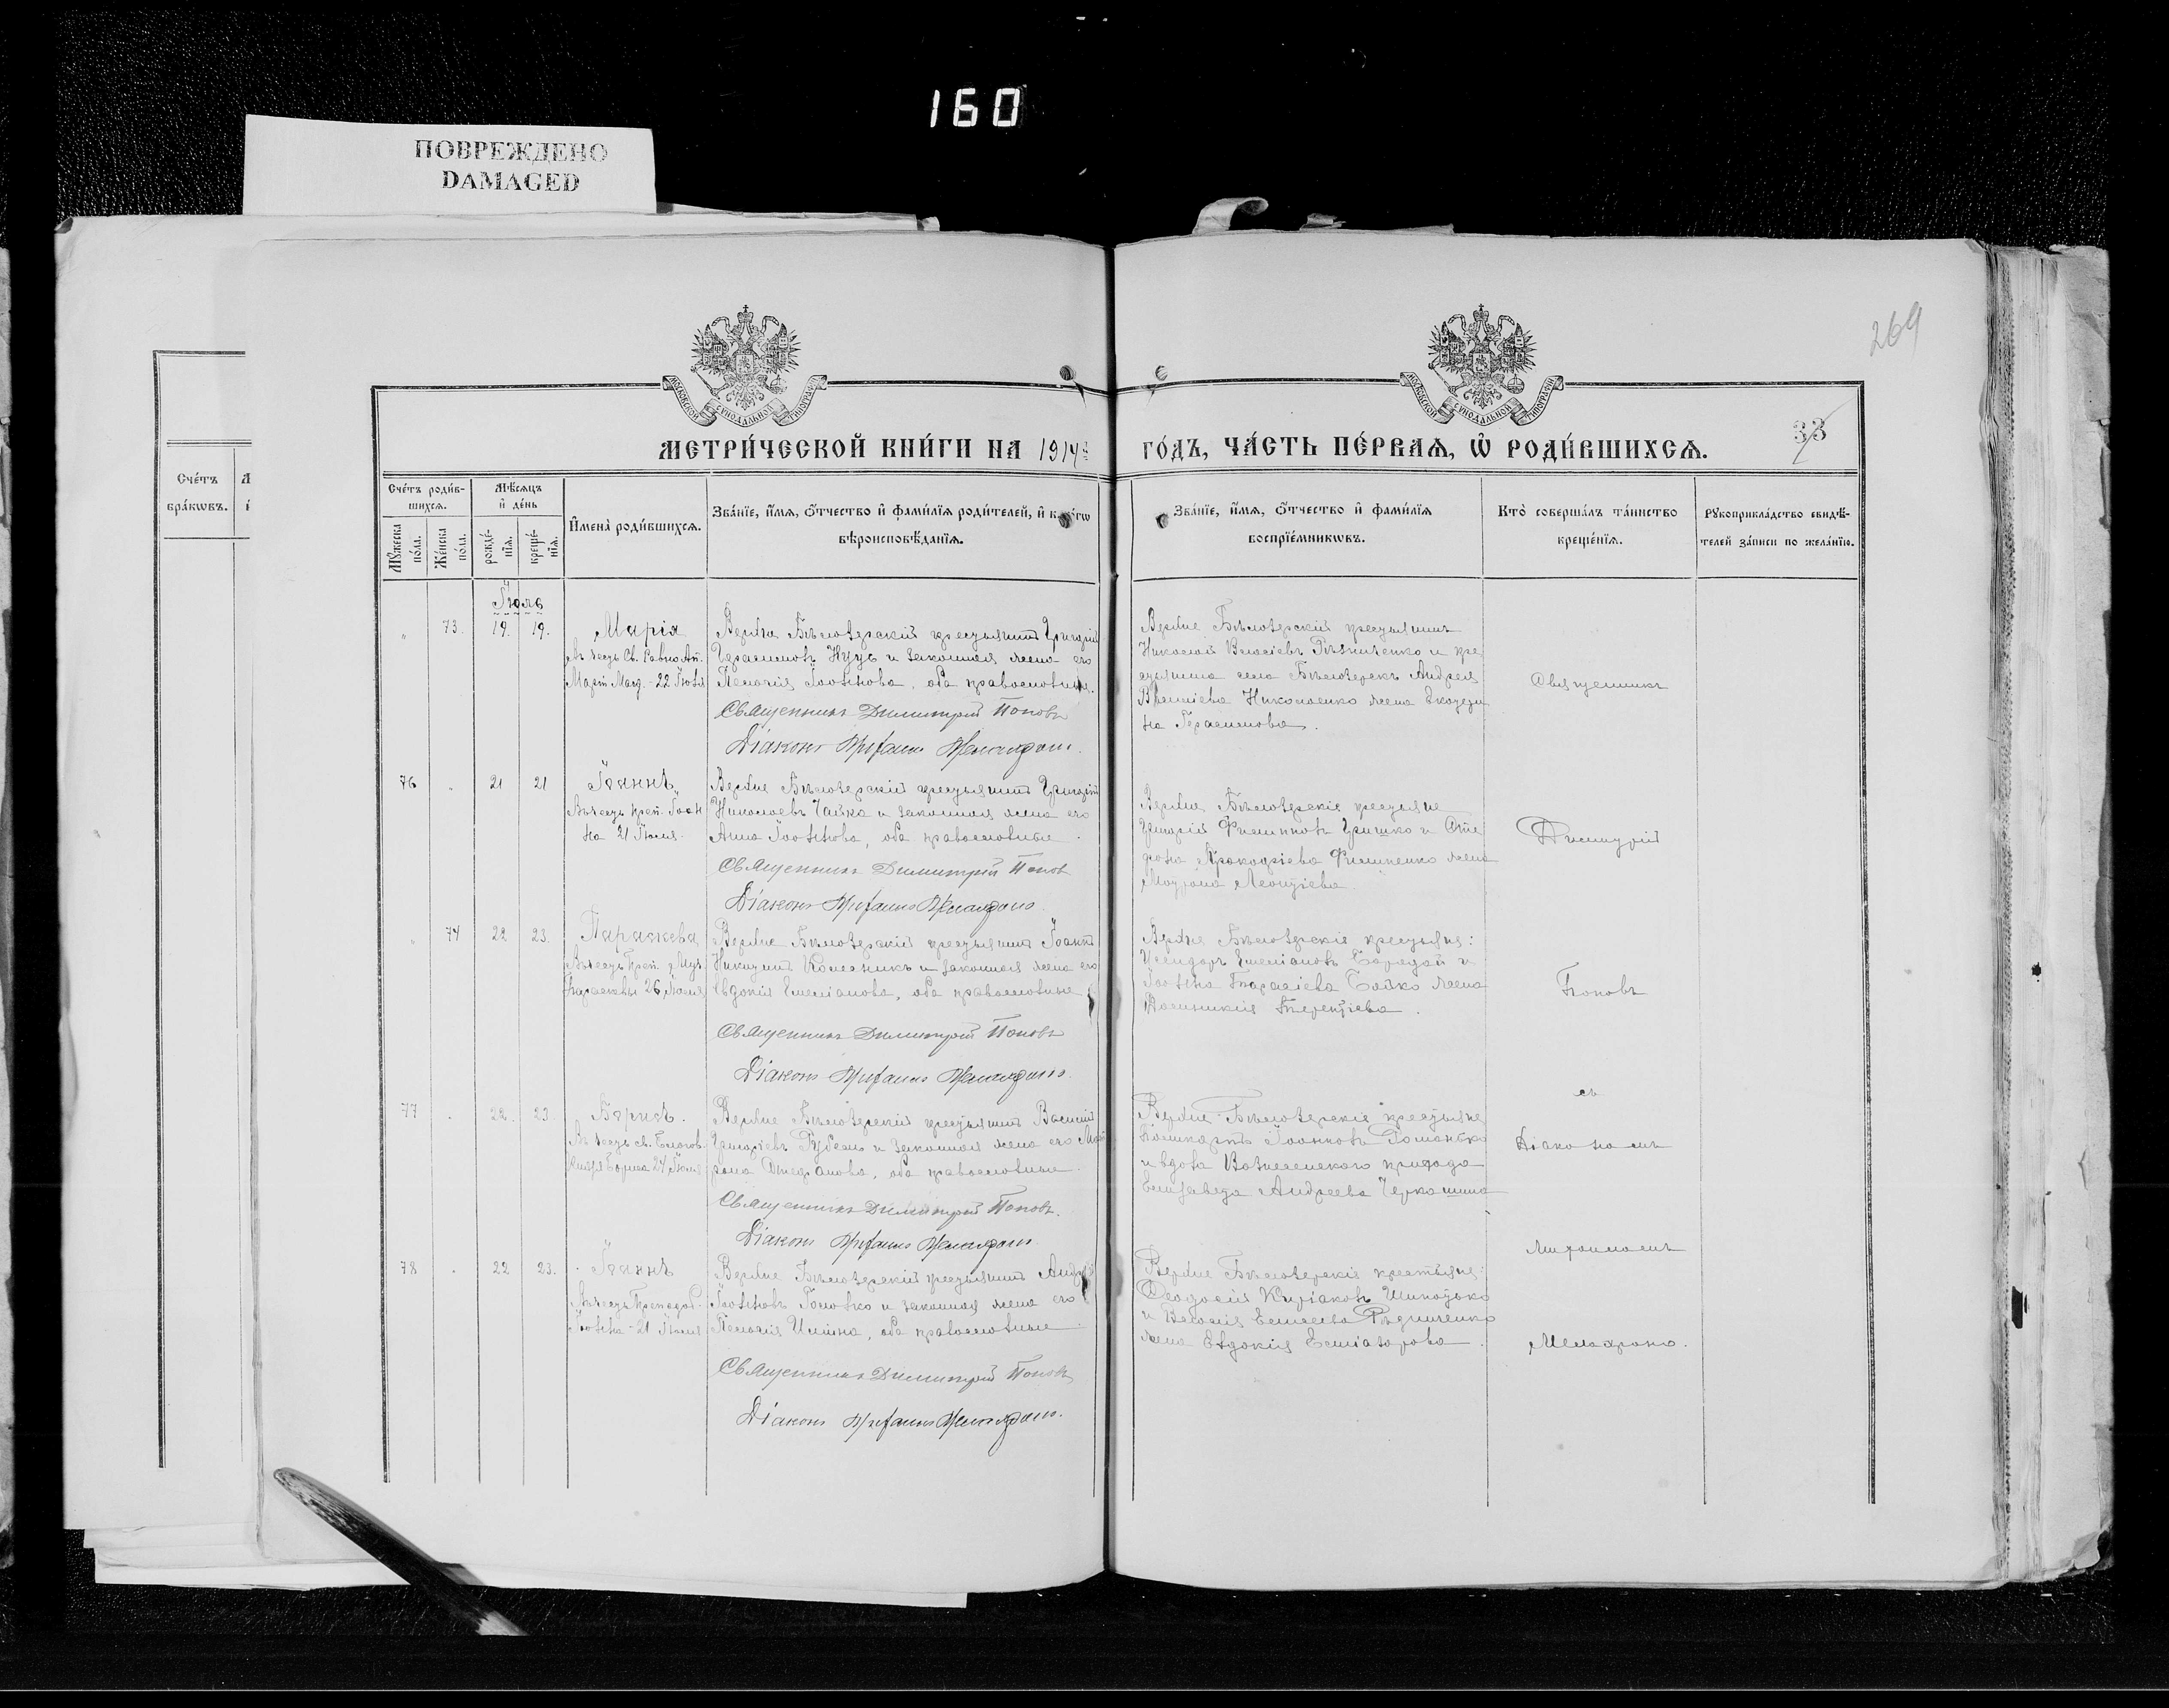 160
ПОВРЕЖДЕНО
DAMAGED
269
МОСКОВСКОЙ СѴНОДАЛЬНОЙ ТИПОГРАФІИ
МОСКОВСКОЙ СѴНОДАЛЬНОЙ ТИПОГРАФІИ
33
МЕТРИ́ЧЕСКОЙ КНИ́ГИ НА 1914 й
ГО́ДЪ, ЧА́СТЬ ПЕ́РВАѦ, Ѡ҆ РОДИ́ВШИХСѦ.
Сче́тъ
бра́кѡвъ.
Сче́тъ роди́в-
шихсѧ.
Мꙋ́жеска по́ла.
Же́нска по́ла.
Мѣ́сѧцъ
и҆ де́нь
рожде́-нїѧ.
креще́-нїѧ.
И҆мена̀ роди́вшихсѧ.
Зва́нїе, и҆́мѧ, ѻ҆́тчество и҆ фами́лїѧ роди́телей, и҆ како́гѡ
вѣроисповѣ́данїѧ.
Зва́нїе, и҆́мѧ, ѻ҆́тчество и҆ фами́лїѧ
воспрїе́мникѡвъ.
Кто̀ соверша́лъ та́инство
креще́нїѧ.
Рꙋкоприкла́дство свидѣ́-
телей за́писи по жела́нїю.
Іюль
" 73. 19. 19. Марія
въ честь Св. Равноап.
Март Магд. - 22 Іюля
Верхне Бѣлозерскій крестьянинъ Григорій
Герасимовъ Нуць и законная жена его
Пелагія Іоаннова, оба православные.
Священникъ Димитрій Поповъ
Діаконъ
Верхне Бѣлозерскій крестьянинъ
Николай Власіевъ Рѣзниченко и кре
стьянина села Бѣлозерокъ Андрея
Николаенко жена Екатери
на Герасимова.
Священникъ
76 " 21 21 Іоаннъ
Въ честь преп. Іоан
на 21 Іюля.
Верхне Бѣлозерскій крестьянинъ Григорій
Николаевъ Чайка и законная жена его
Анна Іоаннова, оба православные.
Священникъ Димитрій Попов
Діаконъ
Верхне Бѣлозерскіе крестьяне
Григорій Филипповъ Гришко и Сте
фана Прокофіева Филипенко жена
Матрона Леонтіева.
Димитрій
" 74 22 23. Параскева
Въ честь Преп. д. Муч.
Параскевы 26 Іюля
Верхне Бѣлозерскій крестьянинъ Іоаннъ
Никитинъ Колесникъ и законная жена его
Евдокія Емеліанова, оба православные
Священникъ Димитрій Поповъ
Діаконъ
Верхне Бѣлозерскіе крестьяне:
Исидоръ Емеліановъ Гарагай и
Іоанна Тарасіева Бойко жена
Домникія Терентіева.
Поповъ
77 " 22. 23. Борисъ.
Въ честь св. Благов.
Князя Бориса 24 Іюля
Верхне Бѣлозерскій крестьянинъ Василій
Григоріевъ Рубель и законная жена его Мат
рона Стефанова, оба православные.
Священникъ Димитрій Поповъ.
Діаконъ
съ
Верхне-Бѣлозерскіе крестьяне
Іоанновъ Романенко
и вдова Вознесенскаго прихода
Елизавета Андреева Черкашина
Діакономъ
78 " 22 23. Іоаннъ
Въ честь Преподоб.
Іоанна - 21 Іюля
Верхне Бѣлозерскій крестьянинъ Андрей
Іоанновъ Головко и законная жена его
Пелагія Иліина, оба православные.
Священникъ Димитрій Поповъ
Діаконъ
Верхне Бѣлозерскіе крестьяне:
Ѳеодосій Киріаковъ
и Василія Елисеева Рѣзниченко
жена Евдокія